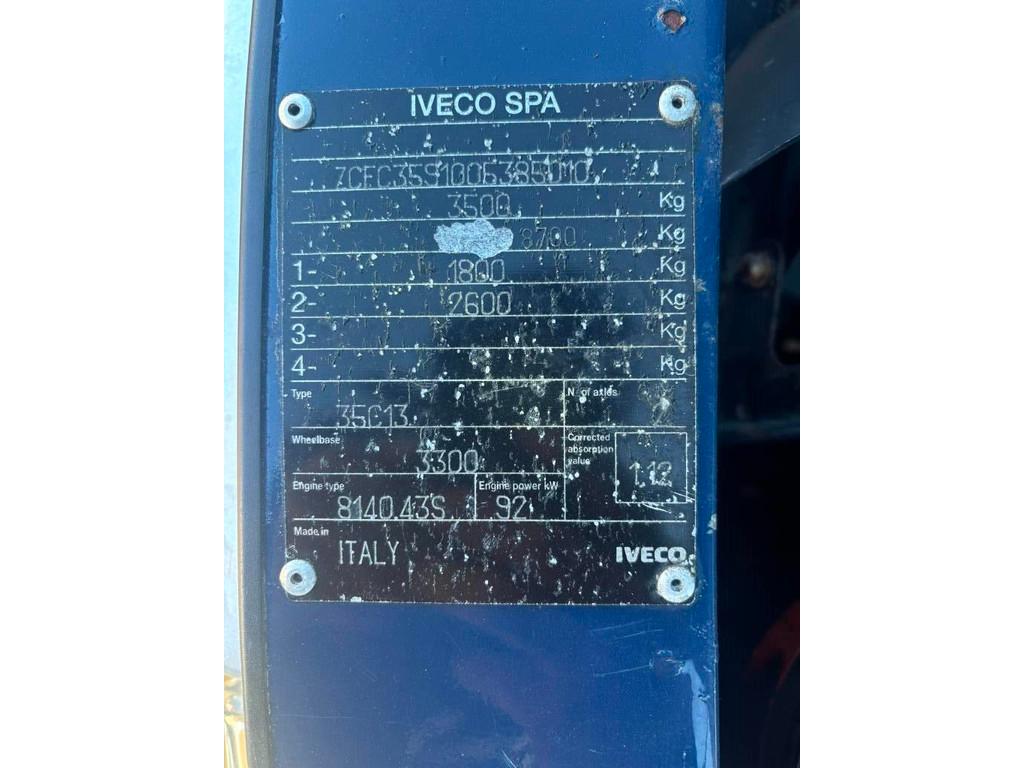 IVECO SPA
ZCFC3591005385010
3500 Kg
8700 Kg
1- 1800 Kg
2- 2600 Kg
3- Kg
4- Kg
Type N. of axles
35C13 2
Wheelbase Corrected absorption value
3300 1.12
Engine type Engine power kW
8140.43S 92
Made in
ITALY IVECO